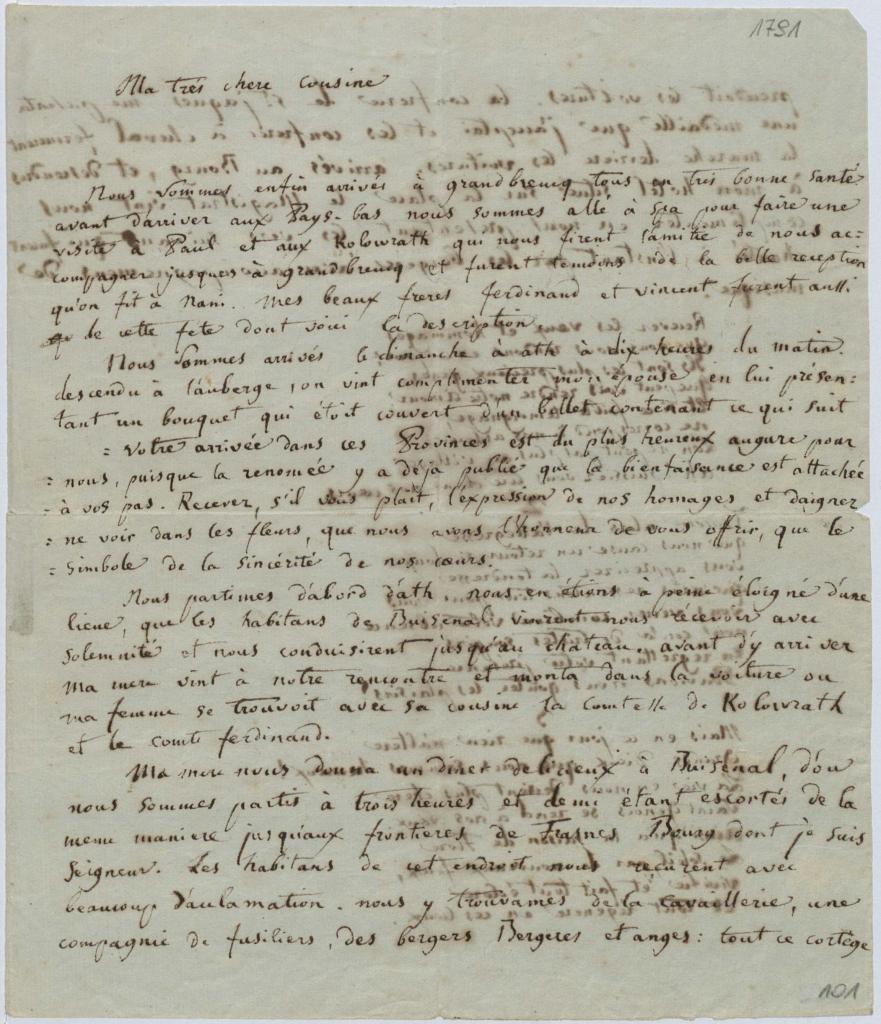 1791
Ma trés chere Cousine
Nous sommes enfin arrivés à grandbreucq tous en trés bonne santé
avant d'arriver aux Pays-bas nous sommes allé à Spa pour faire une
visite à Paul et aux Kolowrath qui nous firent l'amitié de nous ac=
compagner jusques à grandbreucq et furent temoins de la belle reception
qu'on fit à Nani. mes beaux freres ferdinand et vincent furent aussi
de cette fete dont voici la description
Nous sommes arrivés le dimanche à ath à dix heures du matin.
descendu à l'auberge, on vint complimenter mon épouse en lui présen=
tant un bouquet qui étoit couvert d'un billet contenant ce qui suit
= votre arrivée dans ces Provinces est du plus heureux augure pour
= nous, puisque la renomée y a déja publié que la bienfaisance est attachée
= à vos pas. Recever, s'il vous plait, l'expression de nos homages et daigner
= ne voir dans les fleurs, que nous avons l'honneur de vous offrir, que le
= Simbole de la sincérité de nos cœurs.
Nous partimes d'abord d'ath, nous en étions à peine éloigné d'une
lieue, que les habitans de Buisenal vinrent nous récevoir avec
solemnité et nous conduisirent jusqu'au chateau. avant d'y arriver
ma mere vint à notre rencontre et monta dans la voiture ou
ma femme se trouvoit avec sa cousine la Comtesse de Kolowrath
et le comte ferdinand.
Ma mere nous donna un diner delicieux à Buisenal, d'ou
nous sommes partis à trois heures et demi étant escortés de la
meme maniere jusqu'aux frontieres de Frasnes Bourg dont je suis
Seigneur. Les habitans de cet endroit nous reçurent avec
beaucoup d'aclamation. nous y trouvames de la cavaillerie, une
compagnie de fusiliers, des bergers Bergeres et anges: tout ce cortège
101